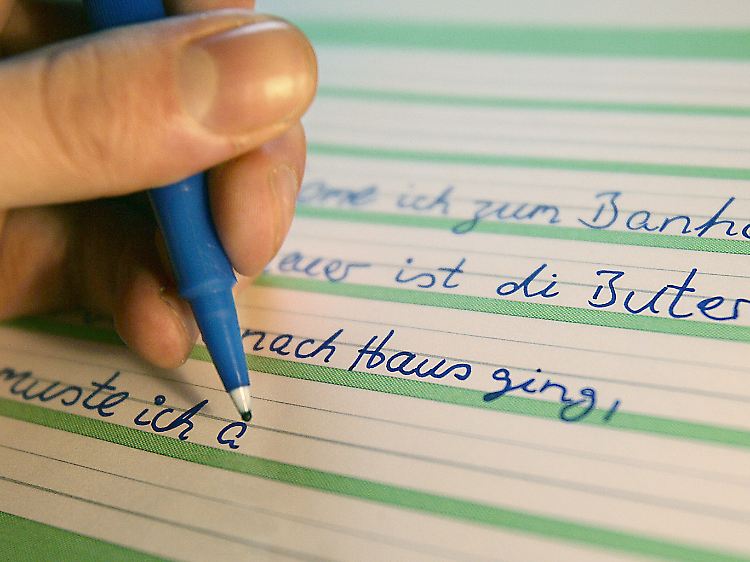 ome ich zum Banho
auer ist di Buter
nach Haus ging,
muste ich a